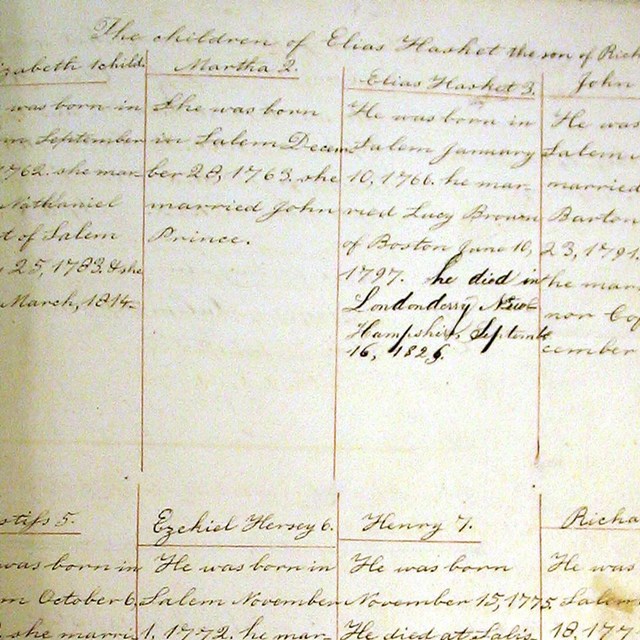 The children of Elias Hasket the son of Rich
izabeth 1 child.
was born in
m September
1762. she mar-
Nathaniel
t of Salem
25, 1783. & she
March, 1814.
Martha 2.
She was born
in Salem Decem
ber 28, 1763. she
married John
Prince.
Elias Hasket 3.
He was born in
Salem January
10, 1766. he mar-
ried Lucy Brown
of Boston June 10,
1797. he died in
Londonderry New
Hampshire, Septemb
16, 1826.
John
He was
Salem
married
Barton
23, 1791.
he marr
nor Cof
cember
5.
was born in
m October 6,
she marri
Ezekiel Hersey 6.
He was born in
Salem November
1, 1772. he mar-
Henry 7.
He was born
November 15, 1775.
He died at
Richa
He was
Salem
18, 177